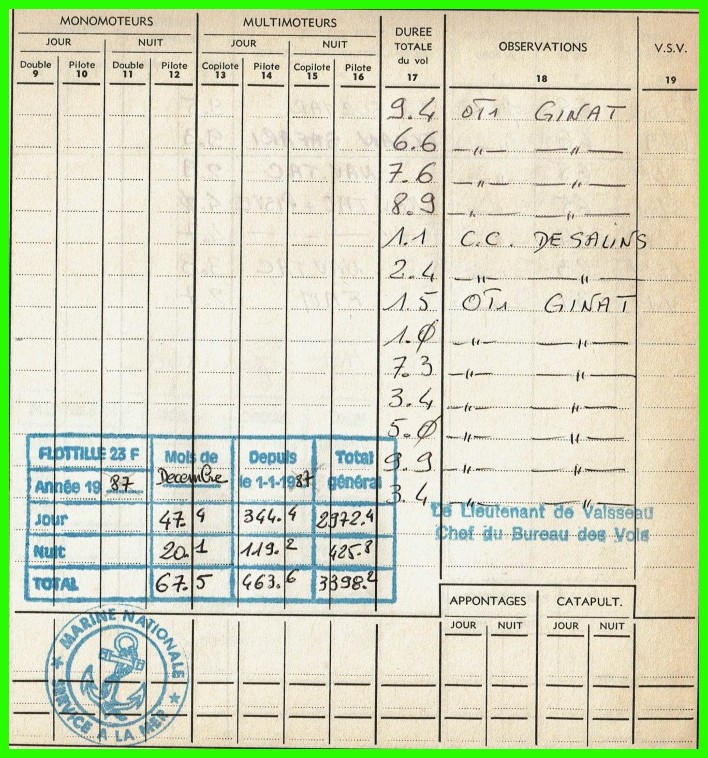 MONOMOTEURS MULTIMOTEURS DUREE TOTALE du vol OBSERVATIONS V.S.V.
JOUR NUIT JOUR NUIT
Double Pilote Double Pilote Copilote Pilote Copilote Pilote
9 10 11 12 13 14 15 16 17 18 19
9.4 OT1 GINAT
6.6 —"— —"—
7.6 —"— —"—
8.9 —"— —"—
1.1 C.C. DESALINS
2.4 —"— —"—
1.5 OT1 GINAT
1.0 —"— —"—
7.3 —"— —"—
3.4 —"— —"—
5.0 —"— —"—
9.9 —"— —"—
3.4 —"— —"—
Le Lieutenant de Vaisseau
Chef du Bureau des Vols
FLOTTILLE 23 F Mois de Depuis Total
Année 1987 Decembre le 1-1-1987 général
Jour 47.4 344.4 2972.4
Nuit 20.1 119.2 425.8
TOTAL 67.5 463.6 3398.2
APPONTAGES CATAPULT.
JOUR NUIT JOUR NUIT
MARINE NATIONALE
SERVICE A LA MER